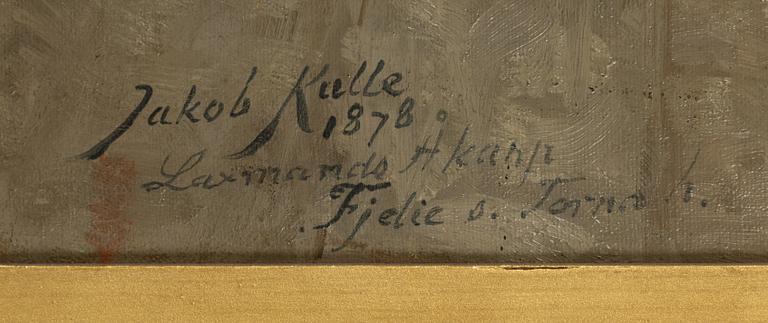 Jakob Kulle
1878.
Laxmands Åkarp
Fjelie s. Torna h.